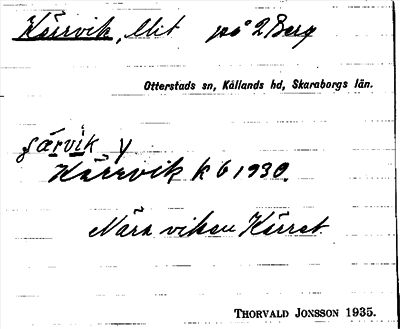 Kärrvik, lht på 2 Berg
Otterstads sn, Kållands hd, Skaraborgs län.
särvik y
Kärrvik k 6 1930.
Nära viken Kärret
THORVALD JONSSON 1935.